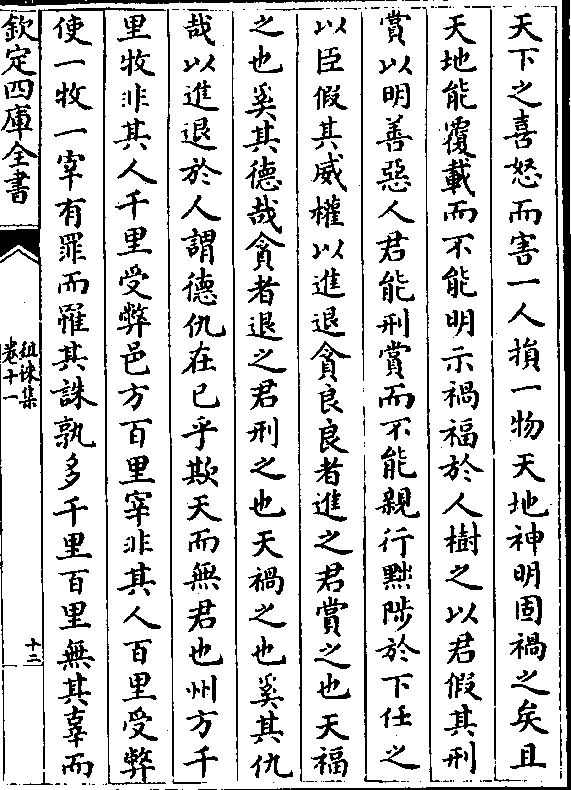 天下之喜怒而害一人損一物天地神明固禍之矣且
天地能覆載而不能明示禍福於人樹之以君假其刑
賞以明善惡人君能刑賞而不能親行黜陟於下任之
以臣假其威權以進退貪良良者進之君賞之也天福
之也奚其德哉貪者退之君刑之也天禍之也奚其仇
哉以進退於人謂德仇在已乎欺天而無君也州方千
里牧非其人千里受弊邑方百里宰非其人百里受弊
使一牧一宰有罪而罹其誅孰多千里百里無其辜而
欽定四庫全書
徂徠集
卷十一
十三